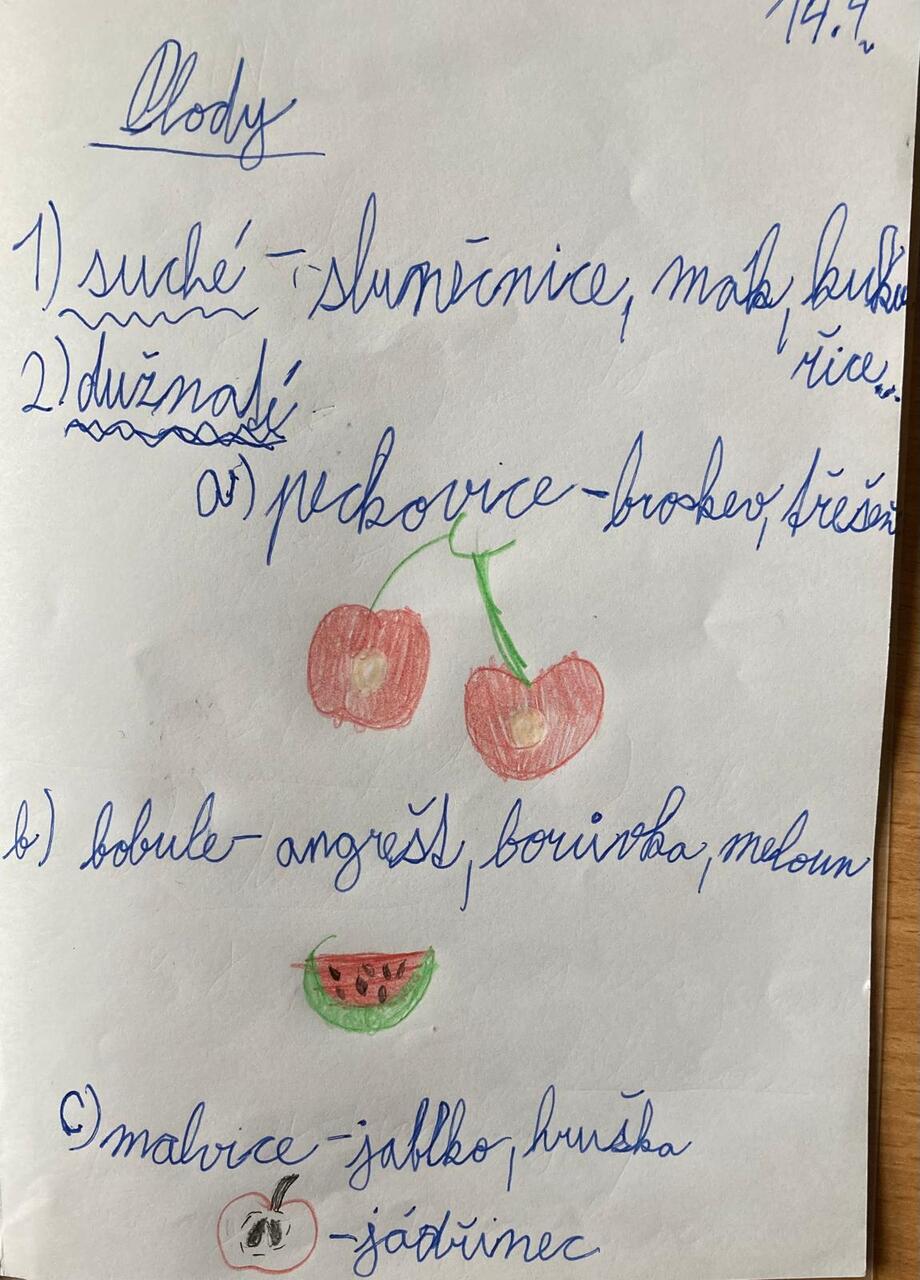 14.4.
Plody
1) suché - slunečnice, mák, kuku
řice
2) dužnaté
a) peckovice - broskev, třešeň
b) bobule - angrešt, borůvka, meloun
c) malvice - jablko, hruška
- jádřinec